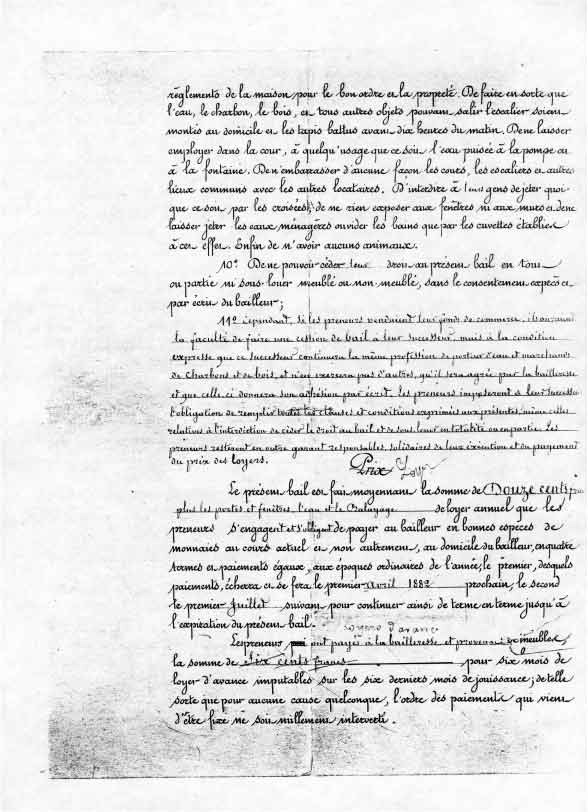 règlements de la maison pour le bon ordre et la propreté. De faire en sorte que
l'eau, le charbon, le bois, et tous autres objets pouvant salir l'escalier soient
montés au domicile et les tapis battus avant dix heures du matin. De ne laisser
employer dans la cour, à quelqu'usage que ce soit l'eau puisée à la pompe ou
à la fontaine. De n'embarrasser d'aucune façon les cours, les escaliers et autres
lieux communs avec les autres locataires. D'interdire à leurs gens de jeter quoi
que ce soit par les croisées, de ne rien exposer aux fenêtres ni aux murs et de ne
laisser jeter les eaux ménagères ou vider les bains que par les cuvettes établies
à cet effet. Enfin de n'avoir aucuns animaux.
10º De ne pouvoir céder leur droit au présent bail en tout
ou partie ni sous-louer meublé ou non meublé, sans le consentement exprès et
par écrit du bailleur;
11º Cependant, si les preneurs vendaient leur fonds de commerce, ils auront
la faculté de faire une cession de bail à leur successeur, mais à la condition
expresse que ce successeur continuera la même profession de porteur d'eau et marchand
de Charbons et de bois, et n'en exercera pas d'autres, qu'il sera agréé par la bailleresse
et que celle ci donnera son adhésion par écrit. Les preneurs imposeront à leur successeur
l'obligation de remplir toutes les clauses et conditions exprimées aux présentes, même celles
relatives à l'interdiction de céder le droit au bail et de sous louer en totalité ou en partie. Les
preneurs resteront en outre garant responsables, solidaires de leur exécution et du payement
du prix des loyers.
Prix
Le présent bail est fait moyennant la somme de Douze cents
plus les portes et fenêtres, l'eau et le Balayage de loyer annuel que les
preneurs s'engagent et s'obligent de payer au bailleur en bonnes espèces de
monnaies au cours actuel et non autrement, au domicile du bailleur, en quatre
termes et paiements égaux, aux époques ordinaires de l'année; le premier, desquels
paiements, écherra et se fera le premier avril 1882 prochain, le second
le premier Juillet suivant pour continuer ainsi de terme en terme jusqu'à
l'expiration du présent bail.
Les preneur ont payés à la bailleresse
la somme de Six cents francs pour six mois de
loyer d'avance imputables sur les six derniers mois de jouissance; de telle
sorte que pour aucune cause quelconque, l'ordre des paiements qui vient
d'être fixé ne soit nullement interverti.